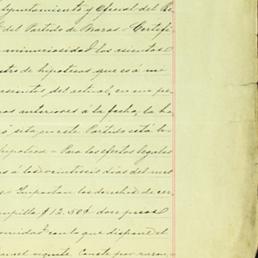 Ayuntamiento y Oficial del Re
del Partido de Bravos - Certifi
minuciosidad los asientos
tro de hipotecas que es á mi
asientos del actual, en una po
nas anteriores á la fecha, la ha
ó sita en este Partido está lo
hipoteca - Para los efectos legales
s á los veintiseis dias del mes
- Importan los derechos de cer
mpilla $12.50¢ doce pesos
ormidad con lo que dispone el
cel vigente. Conste por razon